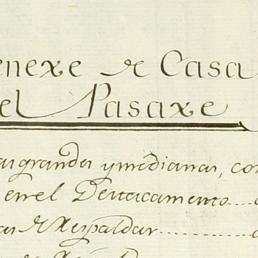 enexe de Casa
el Pasaxe
as grandes y medianas, co
en el Destacamento
as de Respaldar